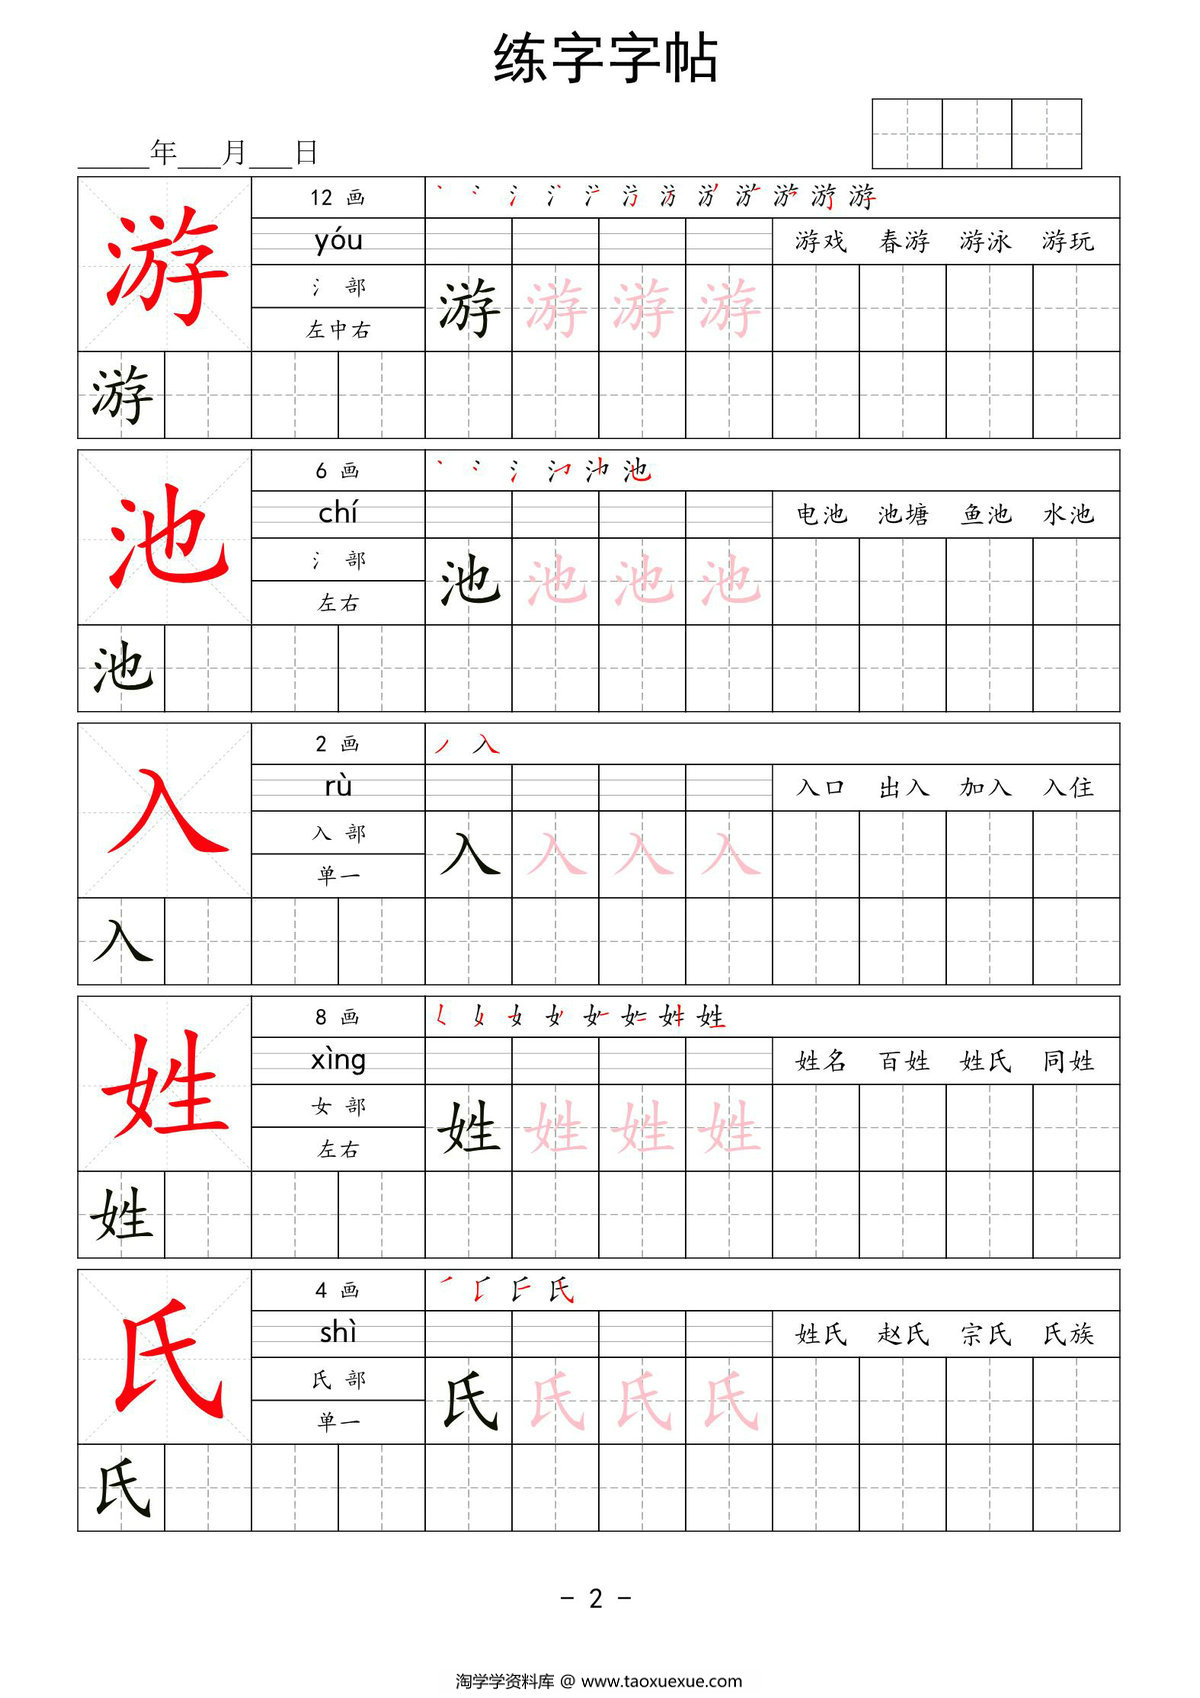 练字字帖
______年___月___日
游
12 画
yóu
氵 部
左中右
游戏 春游 游泳 游玩
游 游 游 游
游
池
6 画
chí
氵 部
左右
电池 池塘 鱼池 水池
池 池 池 池
池
入
2 画
rù
入 部
单一
入口 出入 加入 入住
入 入 入 入
入
姓
8 画
xìng
女 部
左右
姓名 百姓 姓氏 同姓
姓 姓 姓 姓
姓
氏
4 画
shì
氏 部
单一
姓氏 赵氏 宗氏 氏族
氏 氏 氏 氏
氏
- 2 -
淘学学资料库 @ www.taoxuexue.com